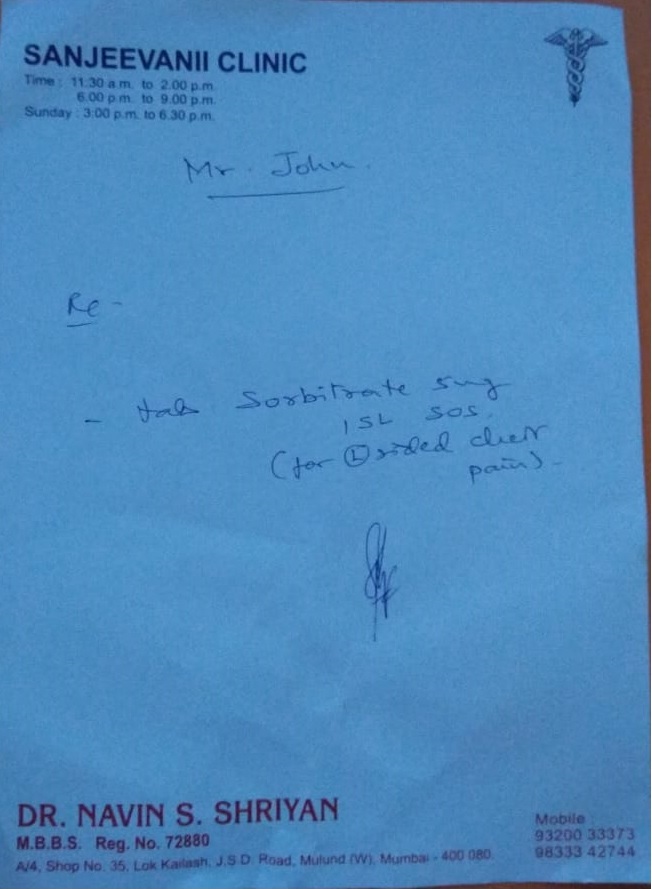 SANJEEVANII CLINIC
Time : 11:30 a.m. to 2.00 p.m.
6.00 p.m. to 9.00 p.m.
Sunday : 3:00 p.m. to 6.30 p.m.
Mr. John.
Re -
- tab Sorbitrate 5mg
1 SL SOS.
(for Ⓛ sided chest
pain).
DR. NAVIN S. SHRIYAN
M.B.B.S. Reg. No. 72880
A/4, Shop No. 35, Lok Kailash, J.S.D. Road, Mulund (W), Mumbai - 400 080.
Mobile :
93200 33373
98333 42744